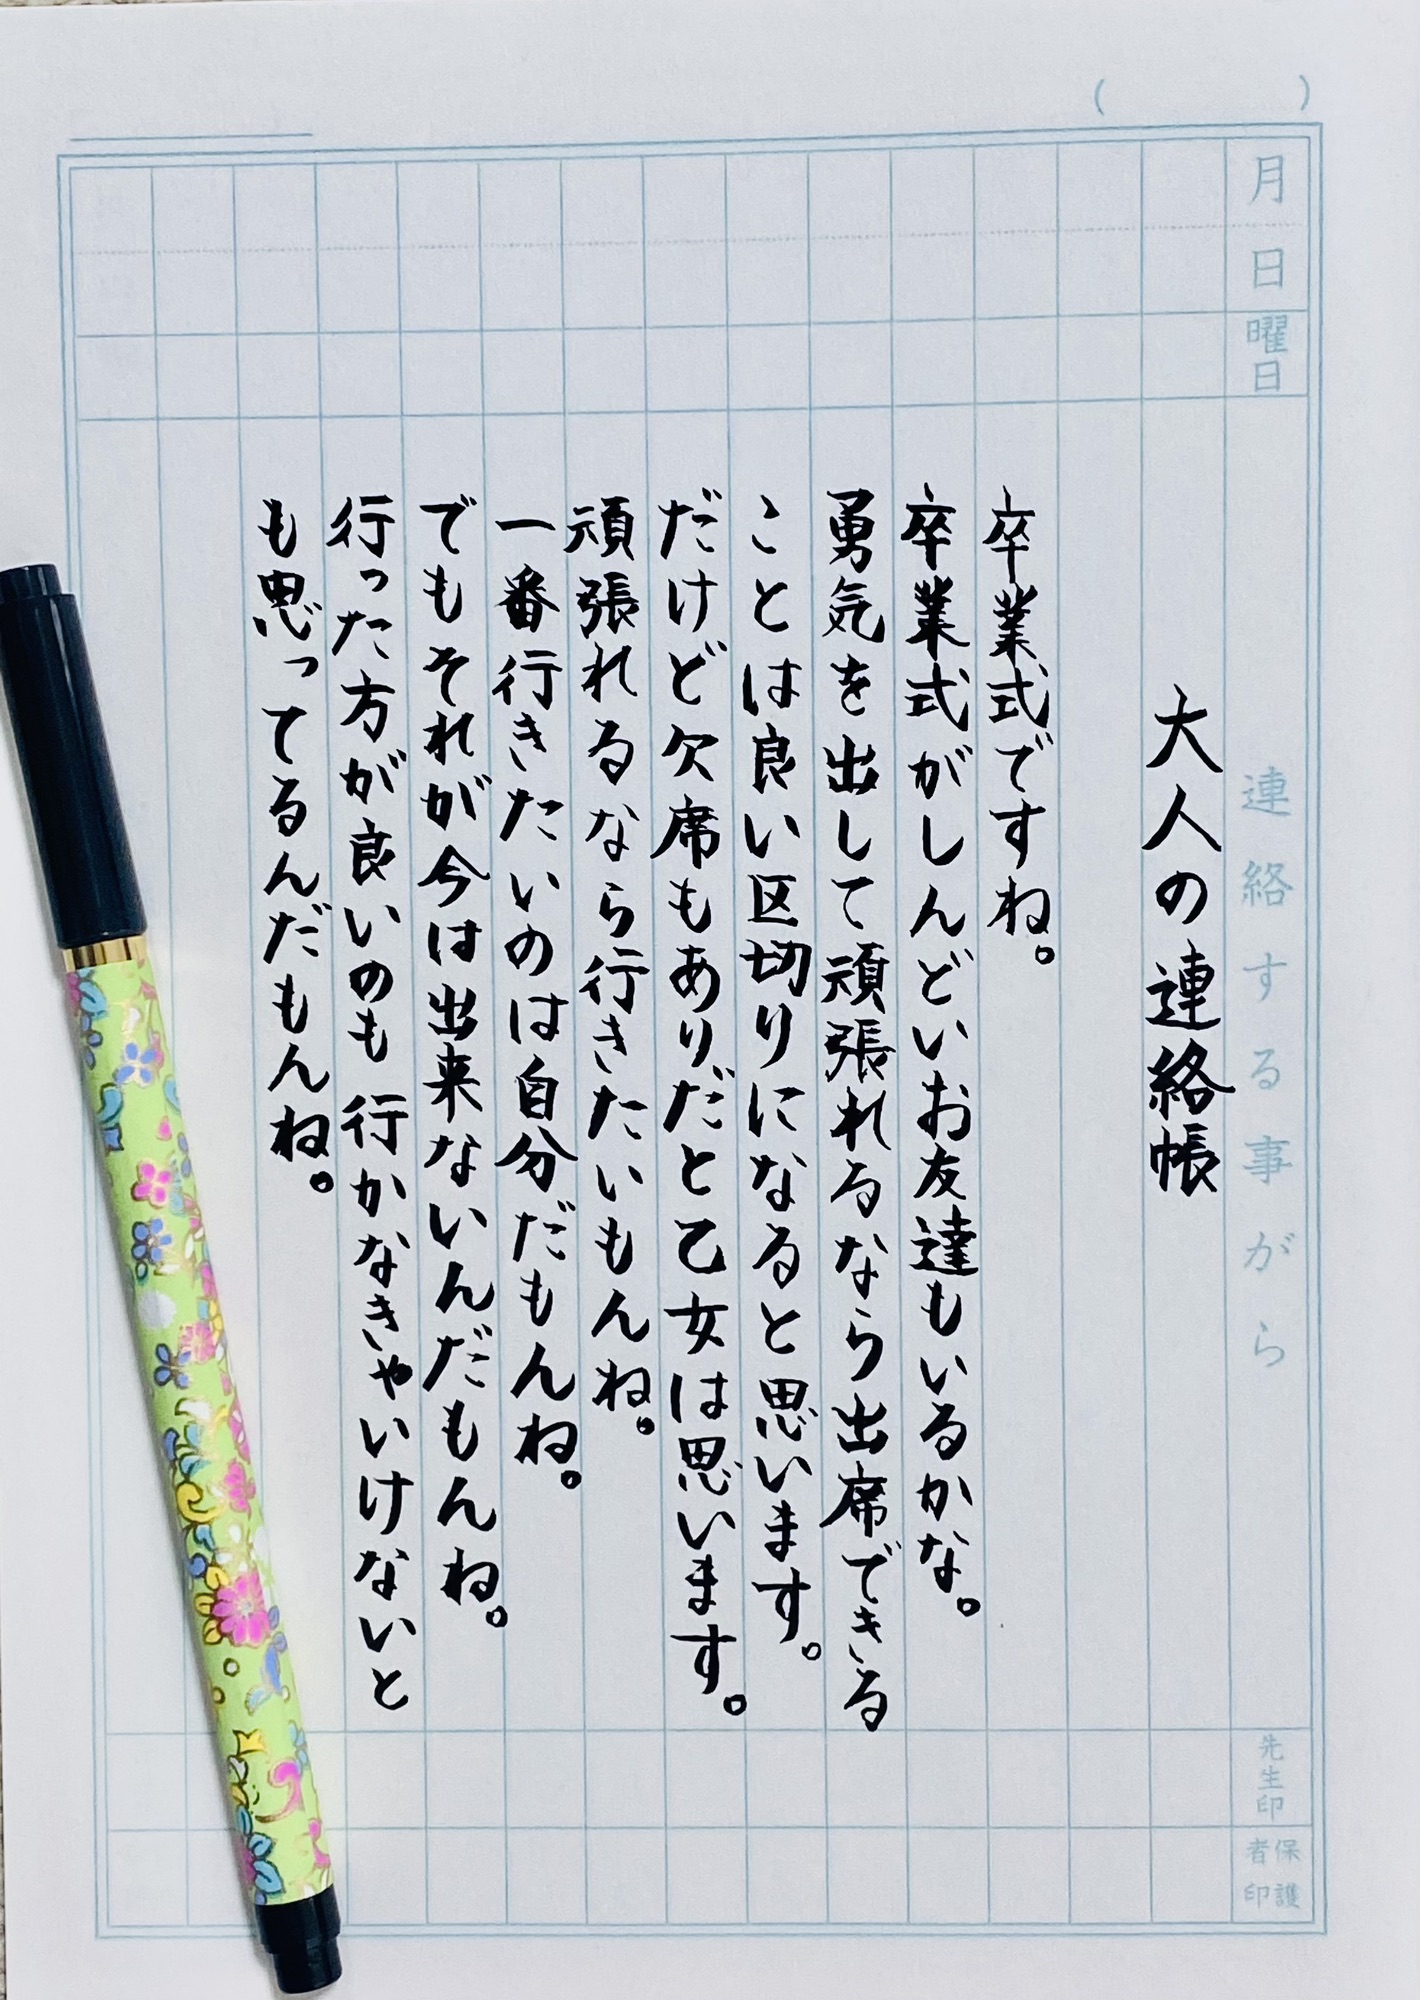 （　　　）
月　日　曜日　連絡する事がら　先生印　保護者印
大人の連絡帳
卒業式ですね。
卒業式がしんどいお友達もいるかな。
勇気を出して頑張れるなら出席できる
ことは良い区切りになると思います。
だけど欠席もありだと乙女は思います。
頑張れるなら行きたいもんね。
一番行きたいのは自分だもんね。
でもそれが今は出来ないんだもんね。
行った方が良いのも行かなきゃいけないと
も思ってるんだもんね。